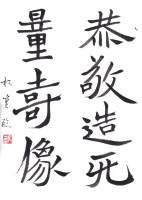 恭敬造死
量壽像